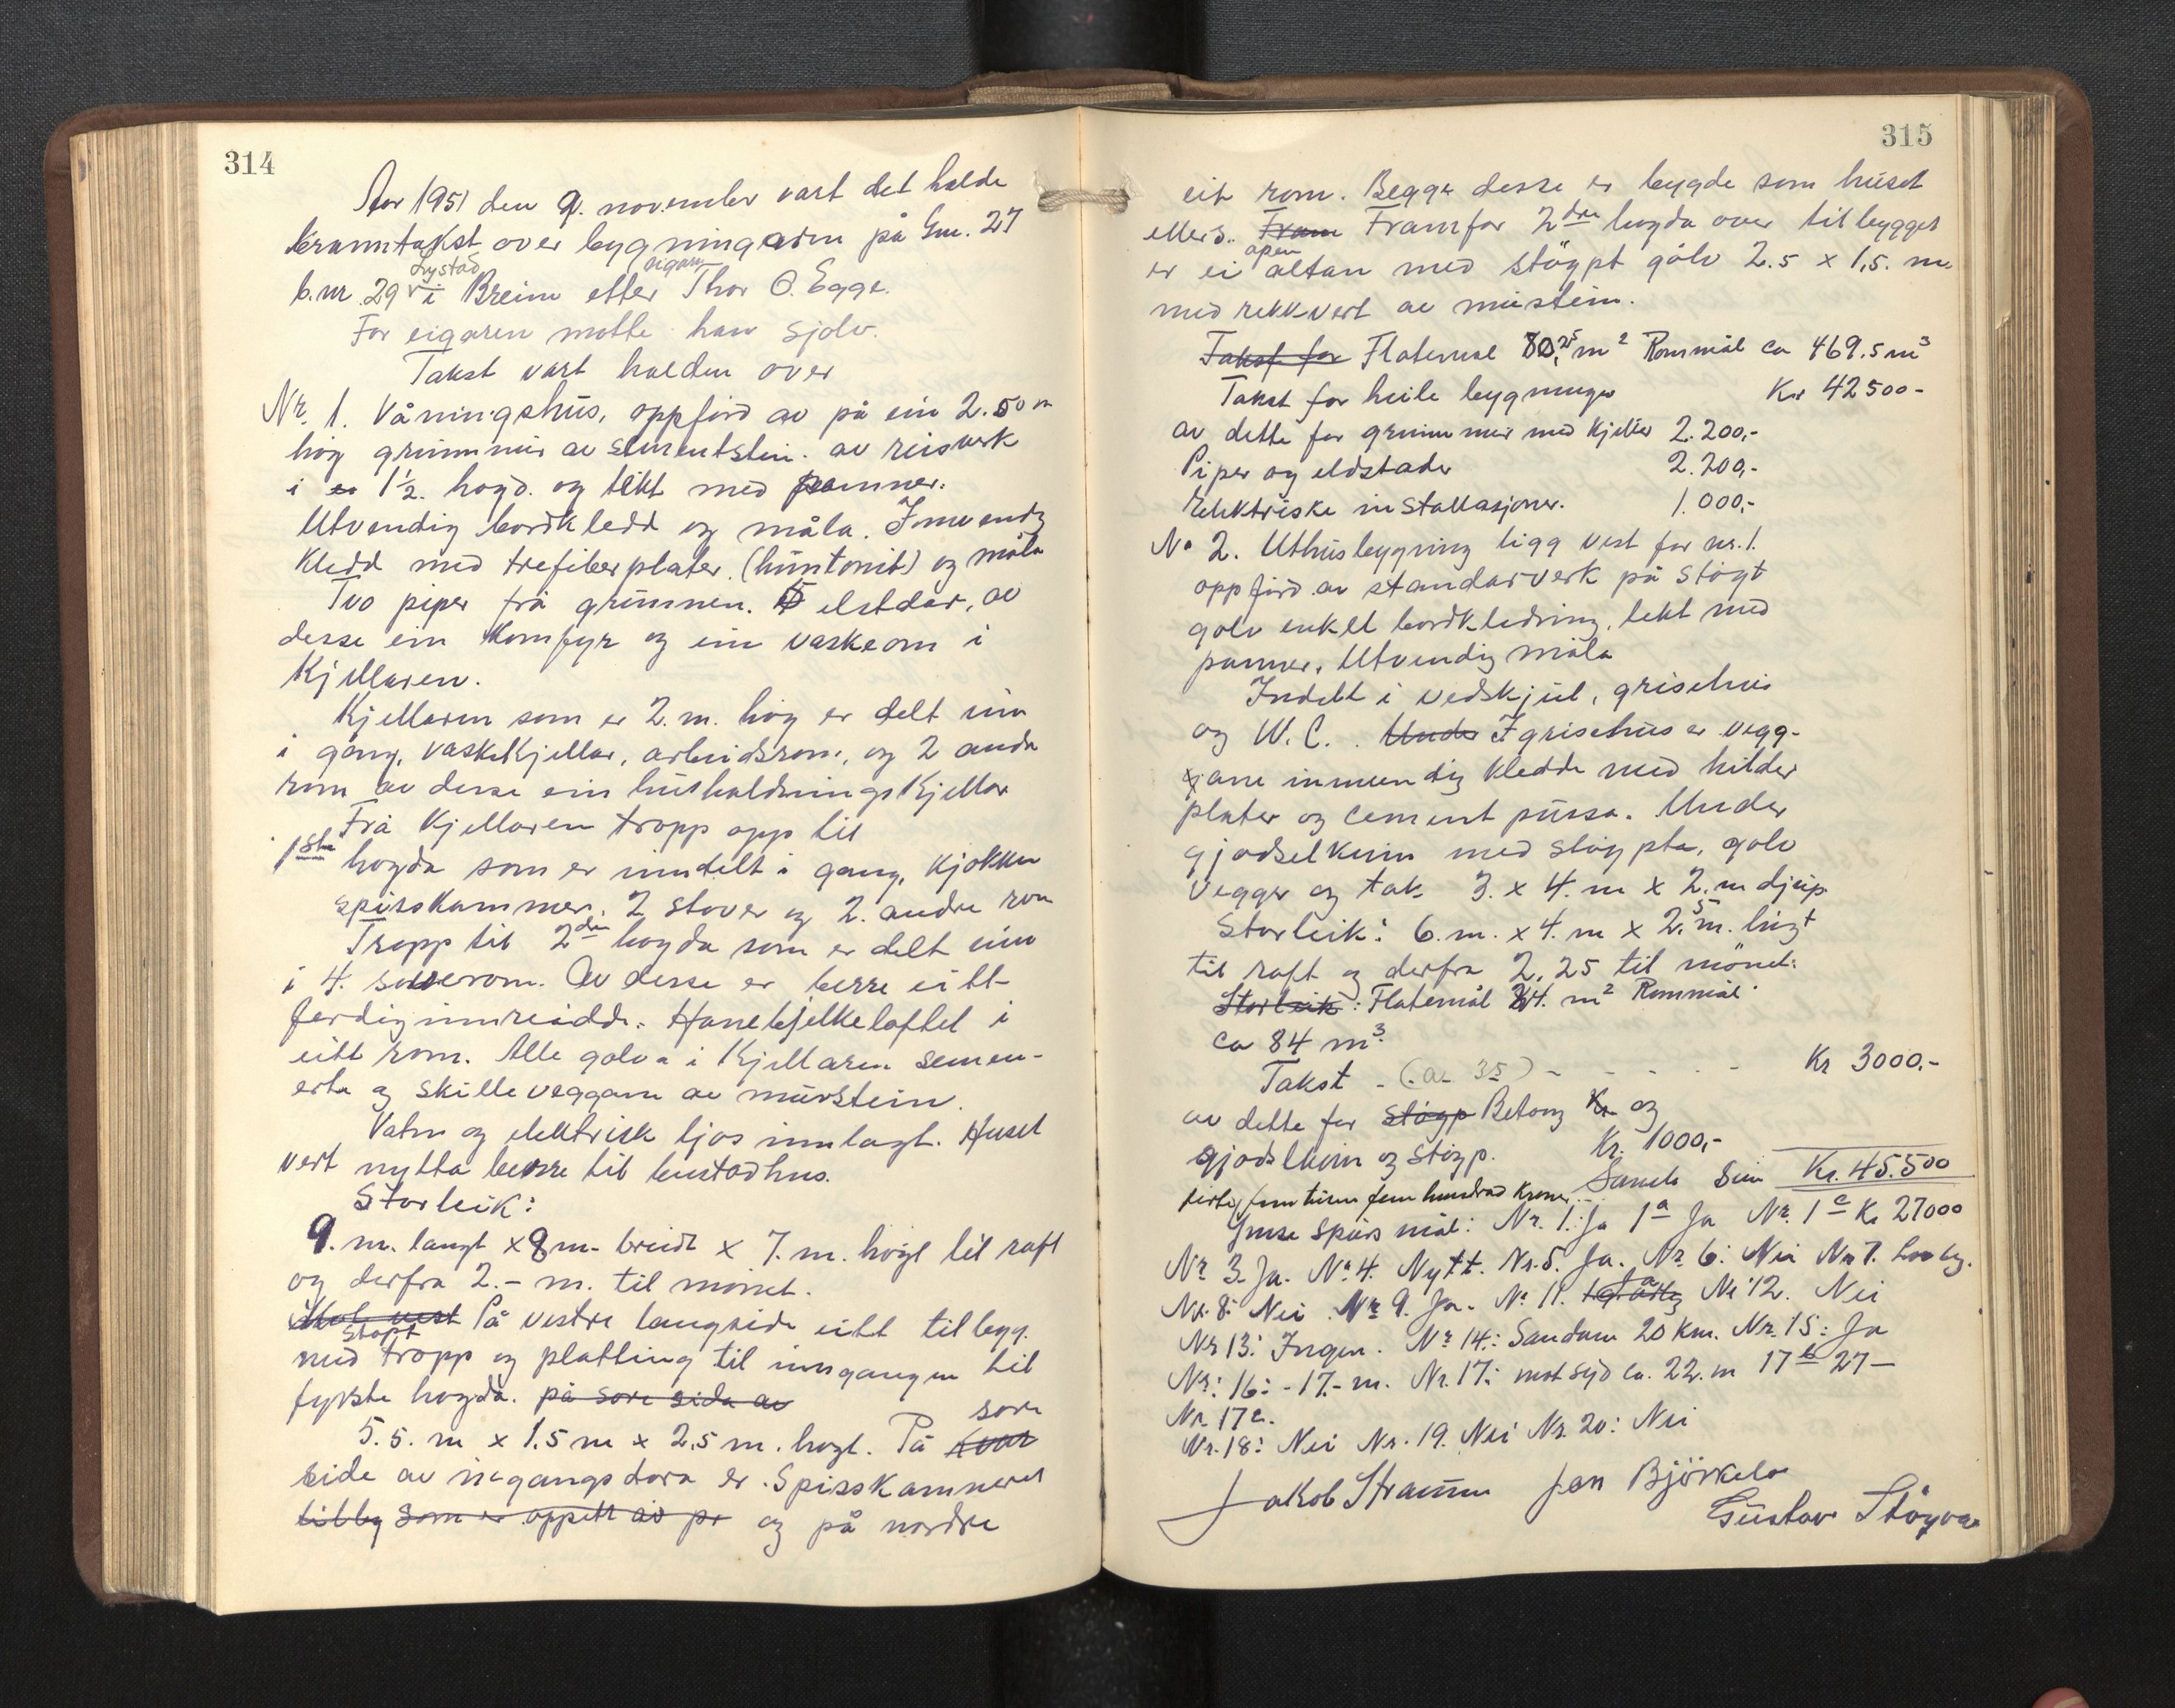 314
Aar 1951 den 9. november vart det halde
branntakst over bygningarne på Gnr. 27
Lystad eigar
b.nr 29 i Breim etter Thor O. Egge.
For eigaren møtte han sjølv.
Takst vart halden over
Nr. 1. Våningshus, oppførd av på ein 2.50 m
høg grunnmur av sementstein. av reisverk
i 1½. høgd. og tekt med panner.
Utvendig bordkledd og måla. Innvendig
kledd med trefiberplater. (huntonit) og måla
Tvo piper frå grunnen. 5 elstdar, av
desse ein komfyr og ein vaskeom i
Kjellaren.
Kjellaren som er 2. m. høg er delt inn
i gang, vaskekjellar, arbeidsrom, og 2 andre
rom av desse ein husholdningskjellar
Frå Kjellaren tropp opp til
1ste høgda som er inndelt i gang, kjøkken
spisskammer, 2 stover og 2. andre rom
Tropp til 2dre høgda som er delt inn
i 4. soverom. Av desse er berre eitt
ferdig innreidde. Hanebjelkeloftet i
eitt rom. Alle golva i Kjellaren semen-
erte og skilleveggane av murstein.
Vatn og elektrisk ljos innlagt. Huset
vert nytta berre til bustadhus.
Storleik:
9. m. langt x 8 m. breidt x 7. m. høgt til raft
og derfra 2.- m. til mønet.
På vestre langside eitt tilbygg.
støpt
med tropp og platting til inngangen til
fyrste høgda. på sore side av
5.5. m x 1,5 m x 2,5 m. høgt. På sore
side av ingangsdøra er Spisskammeret
tilbby som er oppsett av pr og på nordre
315
eit rom. Begge desse er bygde som huset
ellers. Fram Framfor 2dre høgda over tilbygget
er ei open altan med støypt golv 2.5 x 1,5. m.
med rekkvert av murstein.
Takst for Flatemål 80,25 m² Rommål ca 469.5 m³
Takst for heile bygningen Kr 42500-
av dette for grunnmur med kjeller 2.200,-
Piper og eldstader 2.200,-
Elektriske installasjoner. 1.000,-
No 2. Uthusbygning ligg vest for nr. 1.
oppførd av standarverk på støypt
golv enkel bordkledning, tekt med
panner. Utvendig måla
Indelt i vedskjul, grisehus
og W.C. Under I grisehus er vegg-
jane innvendig kledde med hilder
plater og cement pussa. Under
gjødselkum med støypte, golv
vegger og tak 3. x 4. m x 2. m djup
Storleik: 6. m. x 4. m x 2,5 m. høgt
til raft og derfra 2,25 til mønet:
Storleik: Flatemål 24. m² Rommål
ca 84 m³
Takst - (a 35) - - - - - Kr 3000,-
av dette for støyp Betong Kr og
gjødslkum og støyp. Kr. 1000,-
Samla Sum Kr. 45.500
førti fem tusen fem hundrad kroner
Ymse spørsmål: Nr. 1: Ja 1a Ja Nr. 1c Kr 27000
Nr 3. Ja. No 4. Nytt. Nr. 5. Ja. Nr 6: Nei Nr 7.
Nr. 8: Nei Nr 9. Ja. No 11. Ja Nr 12. Nei
Nr 13: Ingen. Nr 14: Sandane 20 km. Nr. 15: Ja
Nr: 16: - 17.- m. Nr. 17: mot syd ca. 22. m 17b 27-
Nr 17c.
Nr. 18: Nei Nr. 19. Nei Nr. 20: Nei
Jakob Straume Jon Björkelo
Gustav Støyva